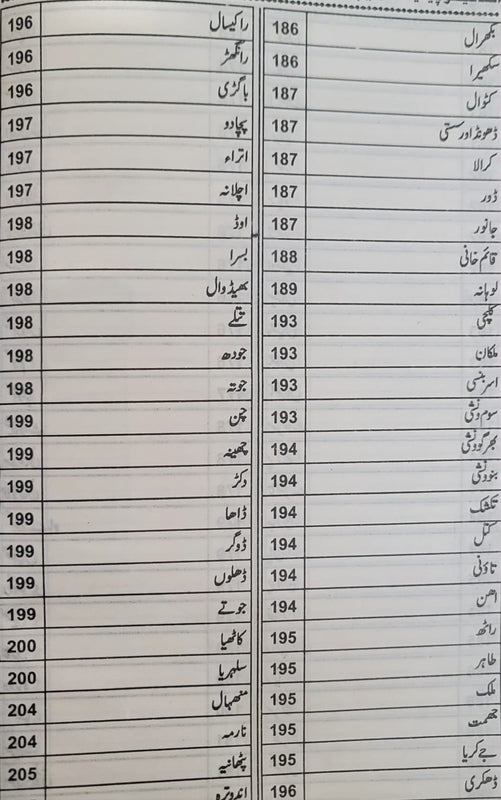 بکھرال 186
سکھیرا 186
کٹوال 187
ڈھونڈ اور ستی 187
کرالا 187
ڈور 187
جانور 187
قائم خانی 188
لوہانہ 189
کلچی 193
ملکان 193
اسر بنسی 193
سوم ونشی 193
بھرگوونشی 194
بنودنشی 194
تکشک 194
کتل 194
تاؤنی 194
اھن 194
راٹھ 195
طاہر 195
ملک 195
جھمت 195
جے کریا 195
ڈھکری 196
راکیسال 196
رانگھڑ 196
باگڑی 196
پچادو 197
اتراء 197
اچلانہ 197
اوڈ 198
بسرا 198
بھیڈوال 198
تتلے 198
جودھ 198
جوتہ 198
چن 199
چھینہ 199
دکڑ 199
ڈاھا 199
ڈوگر 199
ڈھلوں 199
جوتے 199
کاٹھیا 200
سلہریا 200
منھہال 204
نارمہ 204
پٹھانیہ 205
اندوترہ